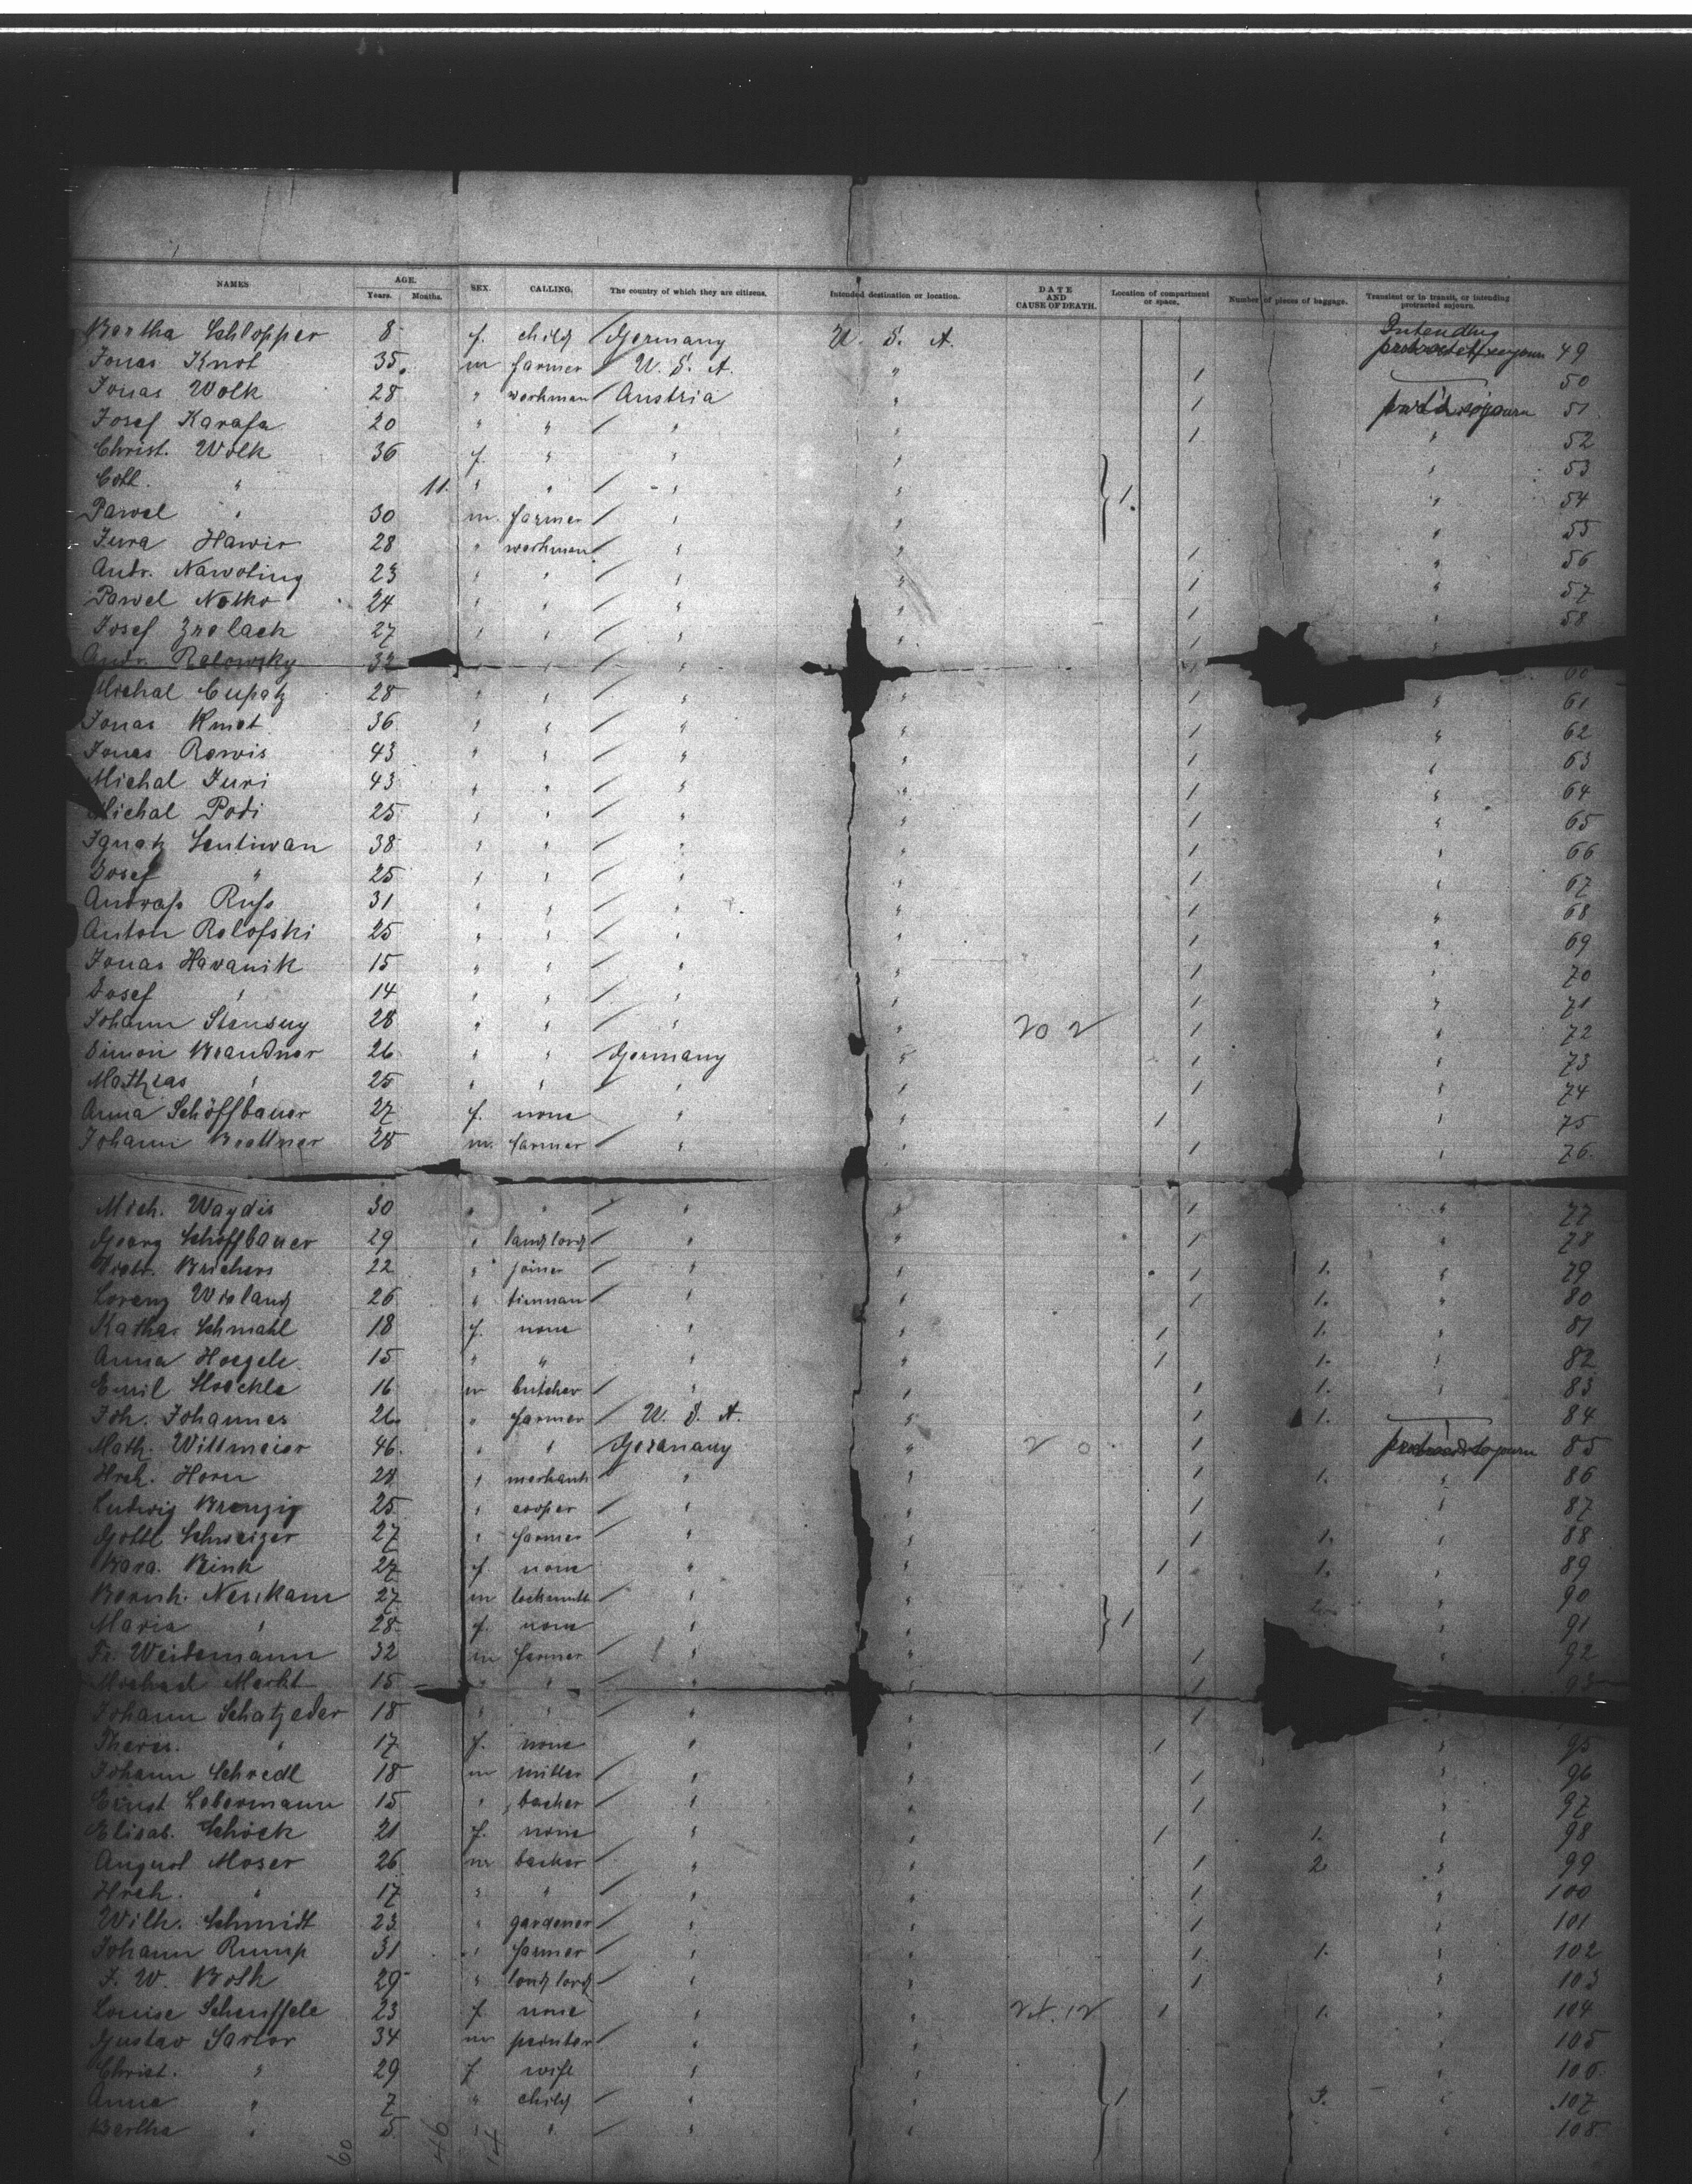 NAMES AGE. Years. Months. SEX. CALLING. The country of which they are citizens. Intended destination or location. DATE AND CAUSE OF DEATH. Location of compartment or space. Number of pieces of baggage. Transient or in transit, or intending protracted sojourn.
Bertha Schlopper 8 f. child Germany U. S. A. Intending 49
Jonas Knot 35 m farmer U. S. A. " 1 50
Jonas Wolk 28 " workman Austria " 1 51
Josef Karafa 20 " " " " 1 " 52
Christ. Wolk 36 f. " " " " 53
Cott. " 11 " " " " 1. " 54
Pawel " 30 m. farmer " " " 55
Jura Hawir 28 " workman " " 1 " 56
Andr. Nawoting 23 " " " " 1 " 57
Pawel Notko 24 " " " " 1 " 58
Josef Zrolack 27 " " " " 1 "
Andr. Relowsky 32 " " " " 1 60
Michal Cupatz 28 " " " " 1 " 61
Jonas Kmet 36 " " " " 1 " 62
Jonas Rewis 43 " " " " 1 " 63
Michal Juri 43 " " " " 1 " 64
Michal Podi 25 " " " " 1 " 65
Ignatz Sentiwan 38 " " " " 1 " 66
Josef " 25 " " " " 1 " 67
Andrass Russ 31 " " " " 1 " 68
Anton Relofski 25 " " " " 1 " 69
Jonas Havanik 15 " " " " 1 70
Josef " 14 " " " " 1 " 71
Johann Stensny 28 " " " " 20 2 1 " 72
Simon Brandner 26 " " Germany " 1 " 73
Mathias " 25 " " " " 1 " 74
Anna Schöffbauer 27 f. none " " 1 " 75
Johann Brettner 28 m. farmer " 1 " 76
Mich. Waydis 30 " " " " 1 " 77
Georg Schöffbauer 29 " landlord " " 1 78
Brichers 22 " joiner " " 1 1. " 79
Lorenz Wieland 26 " tinman " " 1 1. " 80
Kathar Schmahl 18 f. none " " 1 1. " 81
Anna Hoegele 15 " " " " 1 1. " 82
Emil Hoeckle 16 m butcher " " 1 1. " 83
Joh. Johannes 26 " farmer U. S. A. " 1 1. 84
Math. Wittmeier 46 " " Germany " 2 0 1 85
Hrch. Horn 28 " merchant " " 1 1. " 86
Ludwig Brenzig 25 " cooper " " 1 " 87
Gottl Schweizer 27 " farmer " " 1 1. " 88
Bara. Rink 27 f. none " " 1 1. " 89
Bernh. Neukam 27 m locksmith " " " 90
Maria " 28 f. none " " 1 " 91
Fr. Weidemann 32 m farmer " " 1 " 92
Michael Merkt 15 " " " " 1 93
Johann Schatzeder 18 " " " " 1 "
Theres. " 17 f. none " " 1 " 95
Johann Schredl 18 m miller " " 1 " 96
Ernst Lebermann 15 " backer " " 1 " 97
Elisab. Schöck 21 f. none " " 1 1. " 98
August Moser 26 m backer " " 1 2 " 99
Hrch. " 17 " " " " 1 " 100
Wilh. Schmidt 23 " gardener " " 1 " 101
Johann Rump 31 " farmer " " 1 1. " 102
F. W. Both 29 " landlord " " 1 " 103
Louise Scheuffele 23 f. none " " 1 1. " 104
Gustav Sartor 34 m printer " " " 105
Christ. " 29 f wife " " " 106
Anna " 7 " child " " 1 3. " 107
Bertha " 5 " " " " " 108
60 46 14